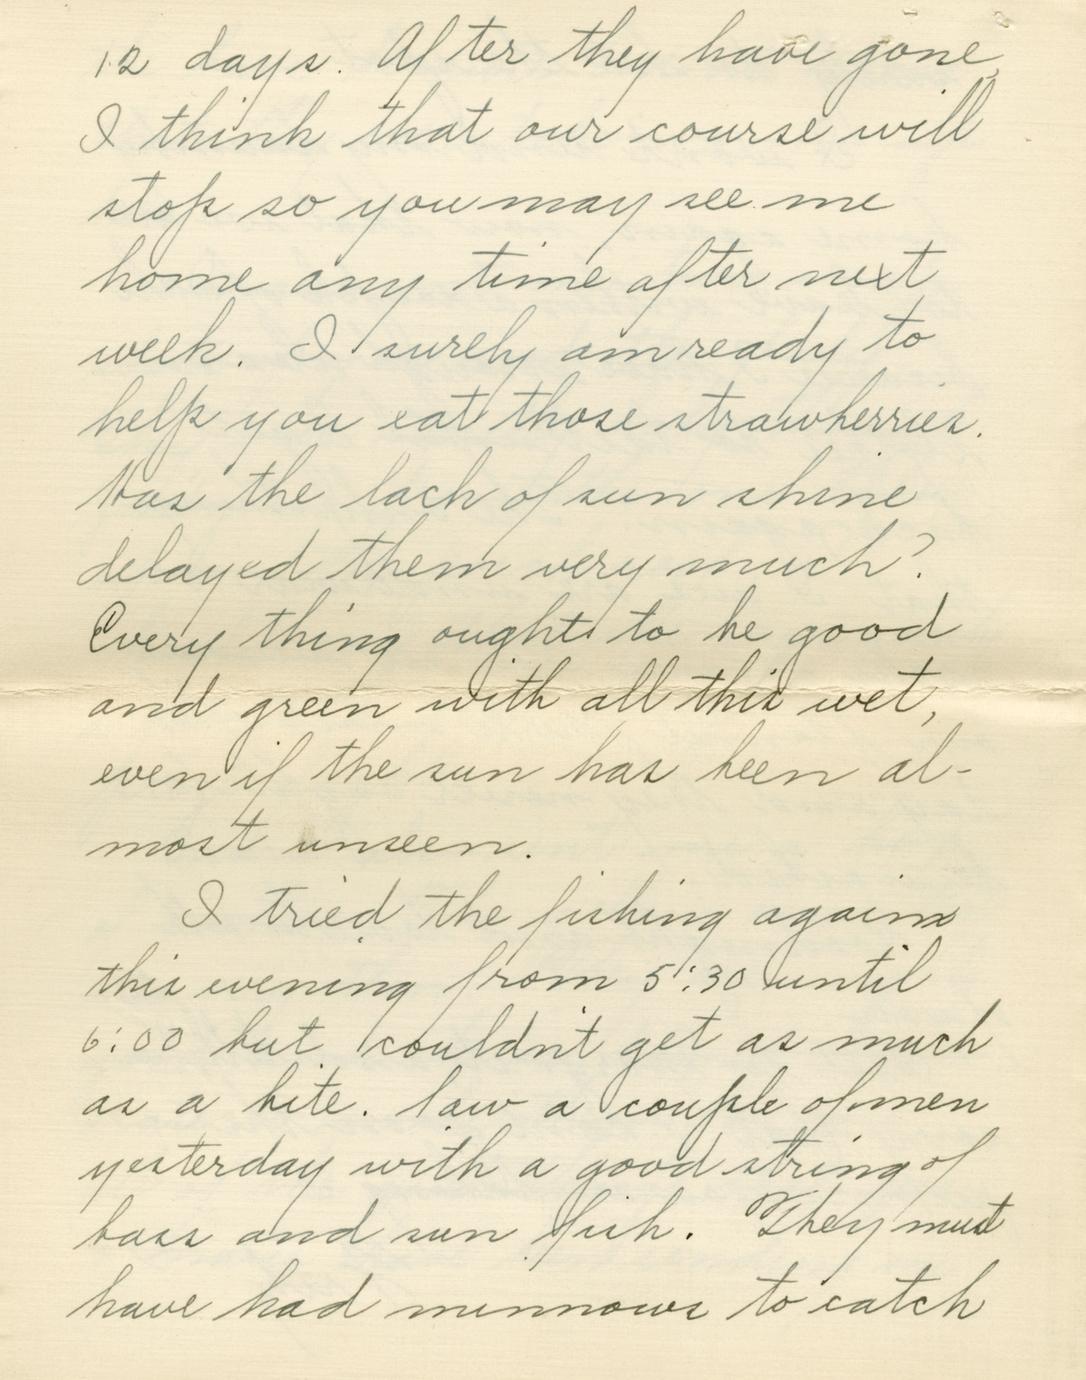 12 days. After they have gone,
I think that our course will
stop so you may see me
home any time after next
week. I surely am ready to
help you eat those strawberries.
Has the lack of sun shine
delayed them very much?
Every thing ought to be good
and green with all this wet,
even if the sun has been al-
most unseen.
I tried the fishing again
this evening from 5:30 until
6:00 but couldn't get as much
as a bite. Saw a couple of men
yesterday with a good string of
bass and sun fish. They must
have had minnows to catch